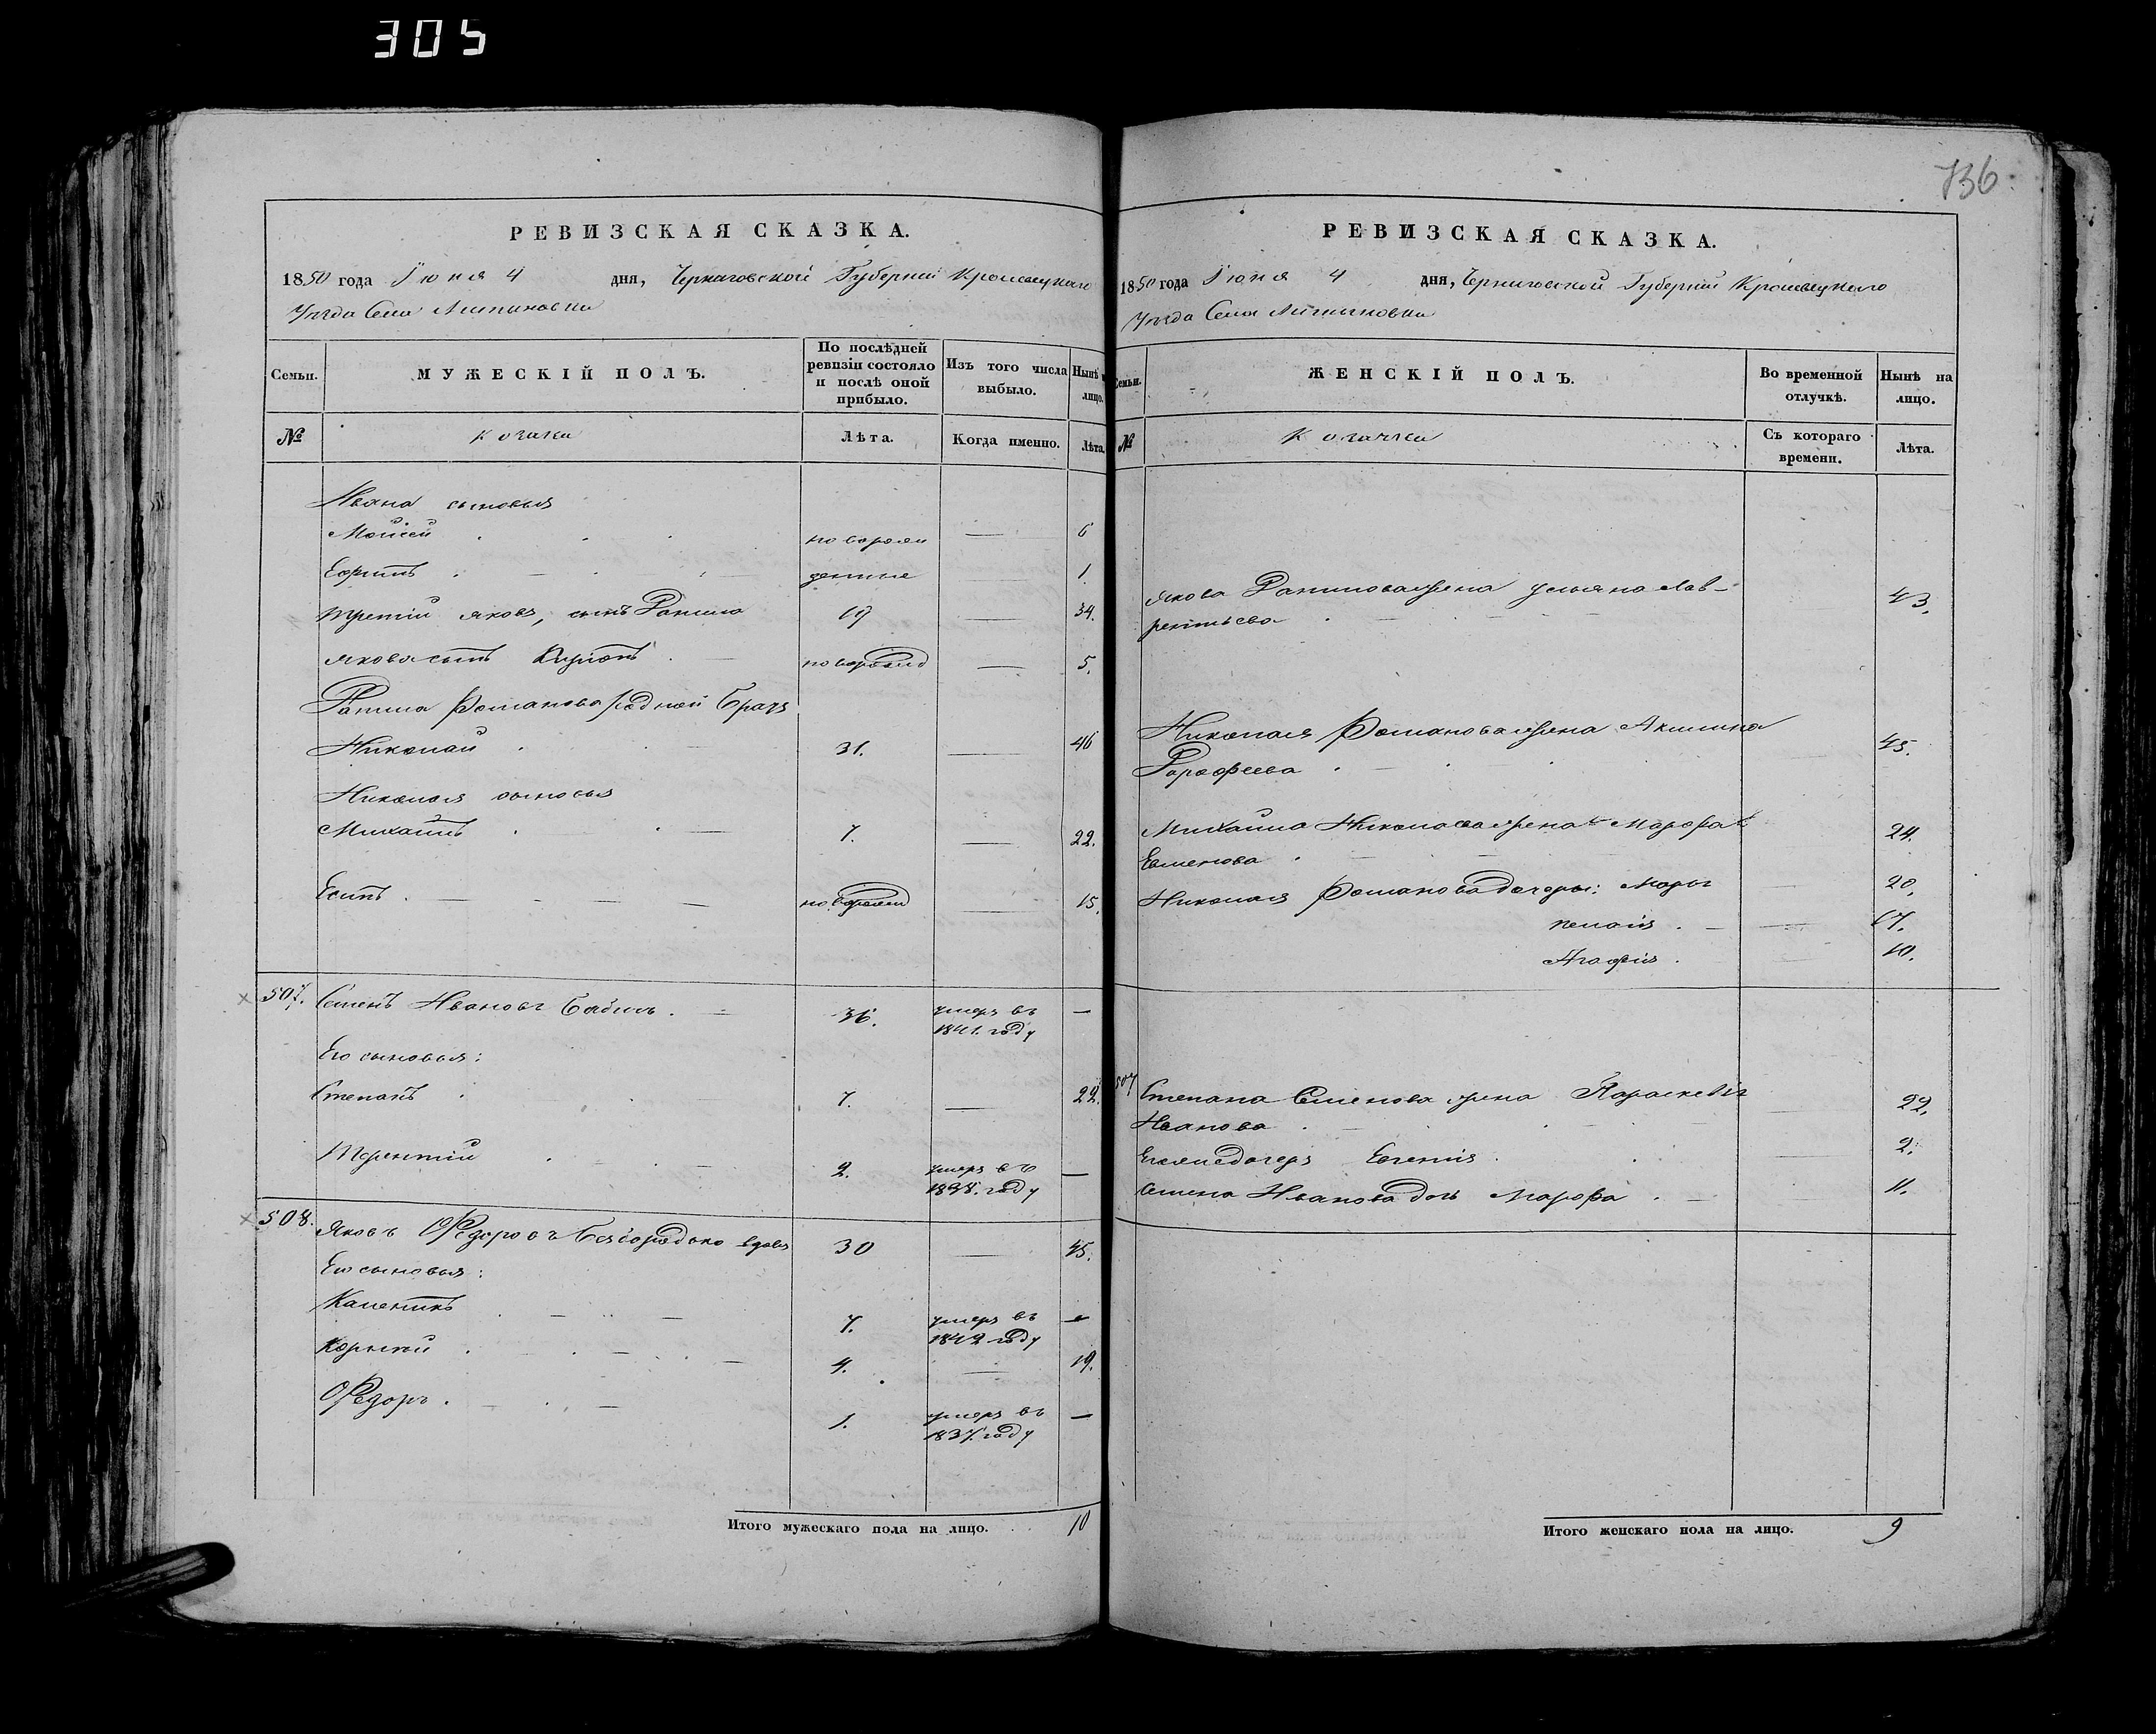 305
736
РЕВИЗСКАЯ СКАЗКА.
1850 года Іюня 4 дня, Черниговской Губерніи Кролевецкаго
Уезда Села Литвиновки
Семьи.
МУЖЕСКІЙ ПОЛЪ.
По послѣдней ревизіи состояло и послѣ оной прибыло.
Изъ того числа выбыло.
Нынѣ на лицо.
№
козаки
Лѣта.
Когда именно.
Лѣта.
Ивана сыновья
Мойсей новорож 6
Ефимъ денные 1.
третій Яковъ, сынъ Данила 19 34.
Якова сынъ новорожд 5.
Данила Романова родной братъ
Николай 31. 46
Николая сыновья
Михаилъ 7. 22.
Есипъ новорожд 15.
507. Семенъ Ивановъ 36. умеръ въ —
1841. году
Его сыновья:
Степанъ 7. 22.
Терентій 2. умеръ въ —
году
508. Яковъ Федоровъ вдовъ 30 45.
Его сыновья:
7. умеръ въ —
1842 году
Корнѣй 4. 19.
Федоръ. 1. умеръ въ —
1837. году
Итого мужескаго пола на лицо. 10
РЕВИЗСКАЯ СКАЗКА.
1850 года Іюня 4 дня, Черниговской Губерніи Кролевецкаго
Уезда Села Литвиновки
Семьи.
ЖЕНСКІЙ ПОЛЪ.
Во временной отлучкѣ.
Нынѣ на лицо.
№
козачки
Съ котораго времени.
Лѣта.
Якова Данилова жена Ульяна Лав-
рентьева 43.
Николая Романова жена Акилина
Дорофеева 45.
Михаила Николаева жена Марфа
Евменова 24.
Николая Романова дочери: 20.
17.
Агафія. 10.
507 Степана Семенова жена Параскевія
Иванова 22.
дочерь Евгенія 2.
Семена Иванова дочь Марфа 11.
Итого женскаго пола на лицо. 9